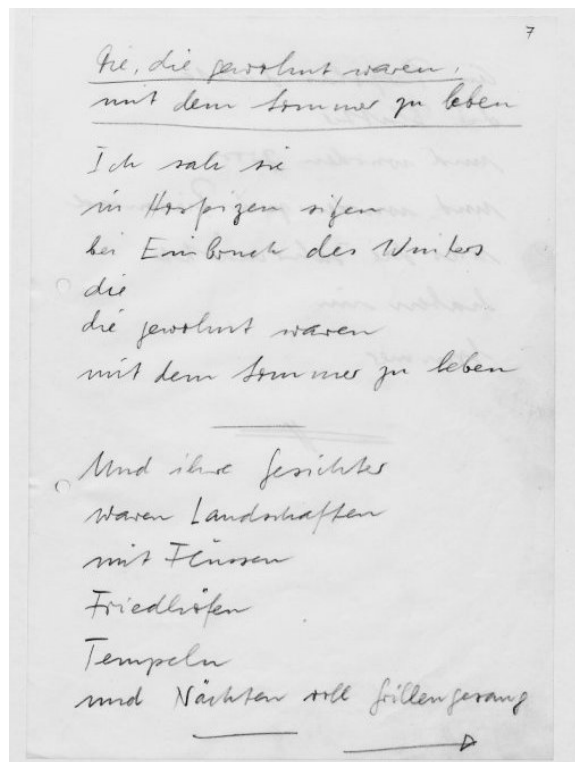 7
Die, die gewohnt waren,
mit dem Sommer zu leben
Ich sah sie
in Hospizen sitzen
bei Einbruch des Winters
die
die gewohnt waren
mit dem Sommer zu leben
Und ihre Gesichter
waren Landschaften
mit Flüssen
Friedhöfen
Tempeln
und Nächten voll Grillengesang